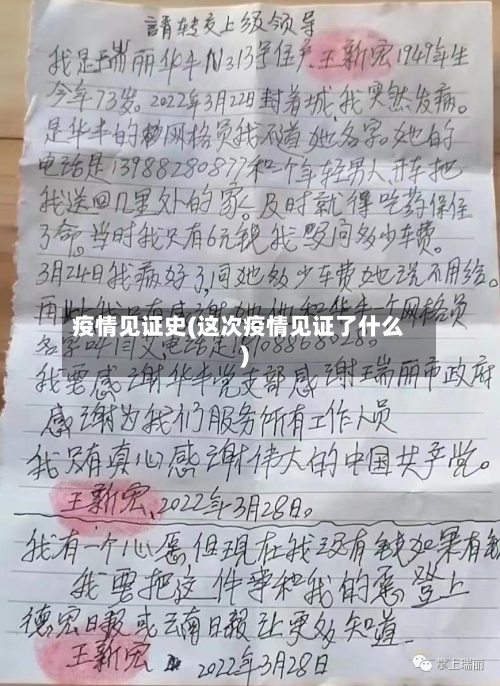 請转交上级领导
我是瑞丽华丰N313号住户王新宏1949年生
今年73岁。2022年3月22日封着城,我突然发病。
是华丰的网格员我不道她名字。她的
电话是13988280877和一个年轻男人开车把
我送回几里外的家。及时就得吃药保住
了命。当时我只有6元钱我没问多少车费。
3月24日我病好了,问她多少车费她说不用给。
网格员
疫情见证史(这次疫情见证了什么
)
名字叫
电话是
我要感谢华丰党支部感谢瑞丽市政府
感谢为我们服务所有工作人员
我只有真心感谢伟大的中国共产党。
王新宏,2022年3月28日。
我有一个心愿,但现在我没有钱如果有
我要把这件事和我的愿登上
德宏日报或云南日报让更多知道
王新宏 2022年3月28日
掌上瑞丽